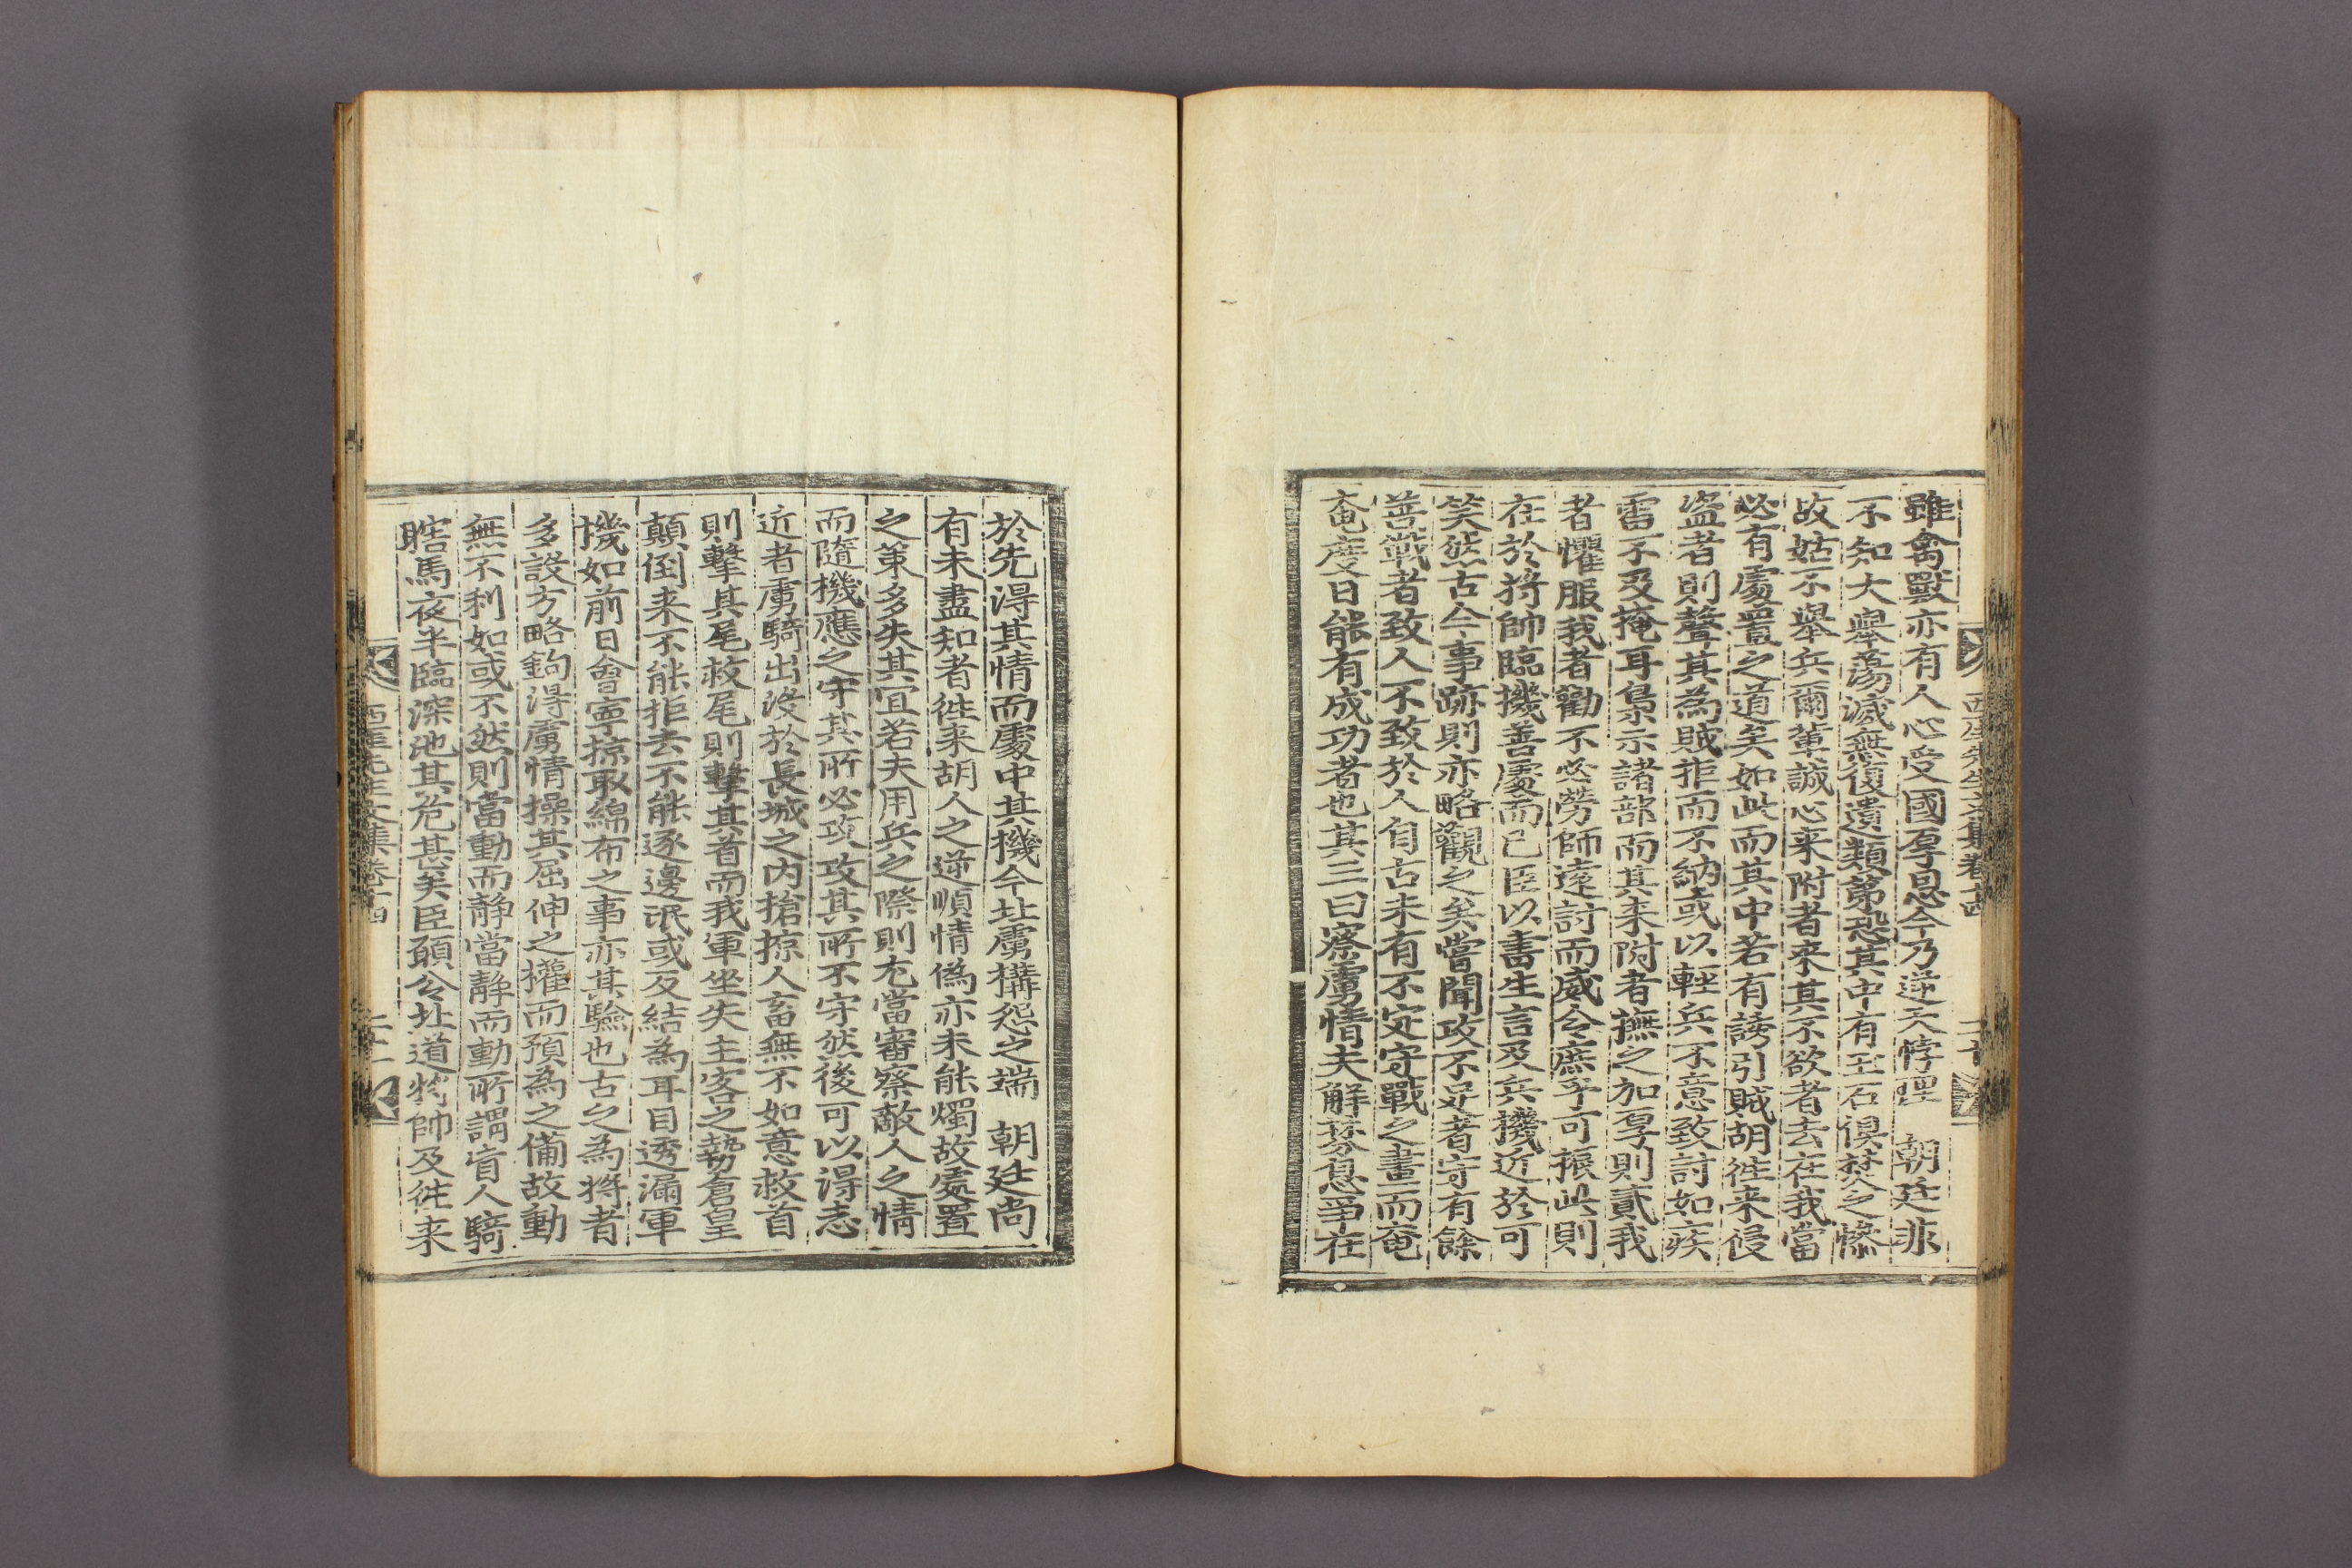 西厓先生文集卷十四
雖禽獸亦有人心受國厚恩今乃逆天悖理　朝廷非
不知大擧蕩滅無復遺類第恐其中有玉石俱焚之慘
故姑不擧兵爾輩誠心来附者来其不欲者去在我當
必有處置之道矣如此而其中若有誘引賊胡徃来侵
盗者則聲其為賊拒而不納或以輕兵不意致討如疾
雷不及掩耳梟示諸部而其来附者撫之加厚則貳我
者懼服我者勸不必勞師遠討而威令庶乎可振此則
在於將帥臨機善處而已臣以書生言及兵機近於可
笑然古今事跡則亦略觀之矣嘗聞攻不足者守有餘
善戰者致人不致於人自古未有不定守戰之畫而奄
奄度日能有成功者也其三曰察虜情夫解紛息爭在
於先淂其情而處中其機今北虜構怨之端　朝廷尚
有未盡知者徃来胡人之逆順情僞亦未能燭故處置
之策多失其宜若夫用兵之際則尤當審察敵人之情
而隨機應之守其所必攻攻其所不守然後可以淂志
近者虜騎出沒於長城之內搶掠人畜無不如意救首
則擊其尾救尾則擊其首而我軍坐失主客之勢倉皇
顛倒来不能拒去不能逐邊氓或反結為耳目透漏軍
機如前日會寧掠取綿布之事亦其驗也古之為將者
多設方略鉤淂虜情操其屈伸之權而預為之備故動
無不利如或不然則當動而靜當靜而動所謂盲人騎
瞎馬夜半臨深池其危甚矣臣願令北道將帥及徃来
西厓先生文集卷十四　二十一